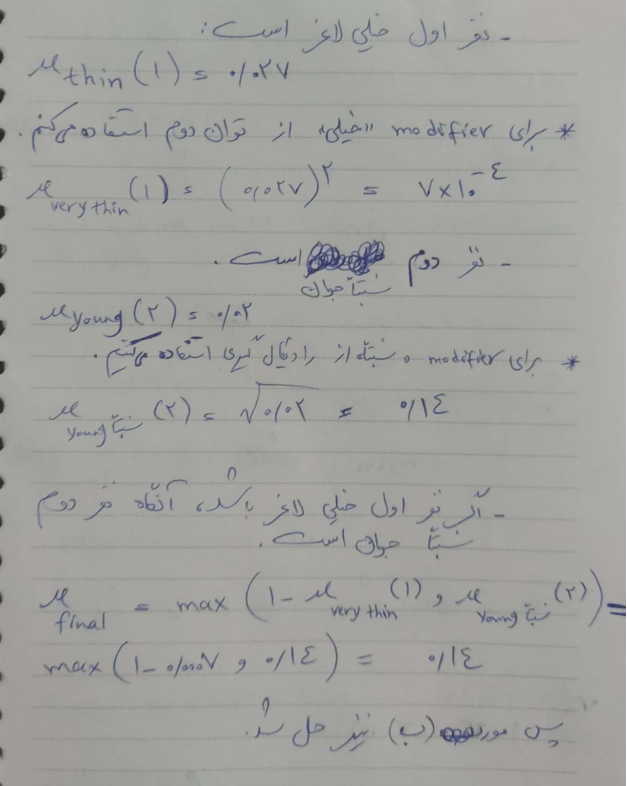 - نفر اول خیلی لاغر است:
μ thin (۱) = ۰/۰۲۷
* برای modifier «خیلی» از توان دوم استفاده می‌کنم.
μ very thin (۱) = (۰/۰۲۷)^۲ = ۷×۱۰^-۴
- نفر دوم نسبتاً جوان است.
μ young (۲) = ۰/۰۲
* برای modifier «نسبتاً» از رادیکال گیری استفاده می‌کنیم.
μ نسبتاً young (۲) = √۰/۰۲ = ۰/۱۴
- اگر نفر اول خیلی لاغر باشد، آنگاه نفر دوم
نسبتاً جوان است.
μ final = max (۱- μ very thin (۱) و μ نسبتاً young (۲)) =
max (۱-۰/۰۰۰۷ و ۰/۱۴) = ۰/۱۴
پس مورد (ب) نیز حل شد.